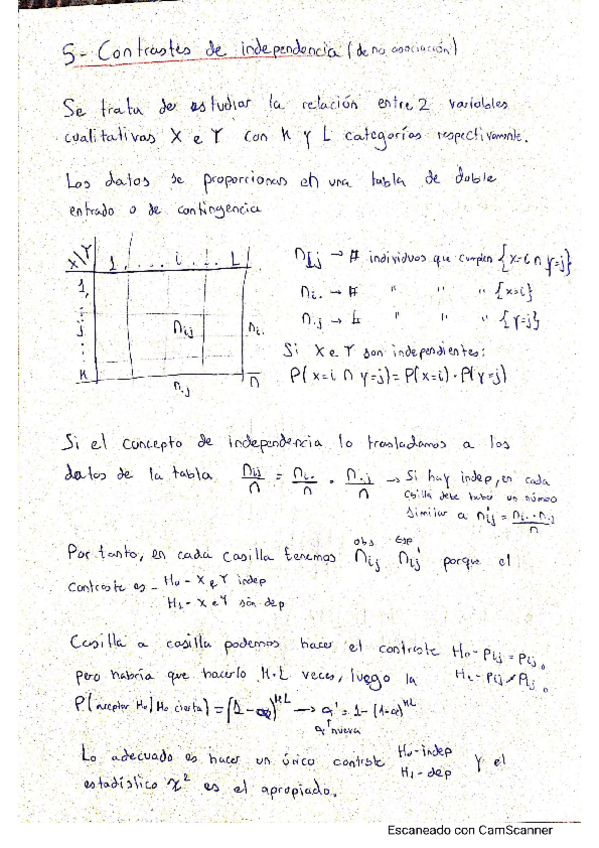 5- Contrastes de independencia (de no asociación)
Se trata de estudiar la relación entre 2 variables
cualitativas X e Y con K y L categorías respectivamente.
Los datos se proporcionan en una tabla de doble
entrada o de contingencia
X\Y 1 . . . . i . . . L
1 . . j . . . K
nij ni.
n.j n
nij → # individuos que cumplen {x=i ∩ y=j}
ni. → # " " " {x=i}
n.j → # " " " {Y=j}
Si X e Y son independientes:
P(x=i ∩ y=j) = P(x=i) · P(y=j)
Si el concepto de independencia lo trasladamos a los
datos de la tabla nij/n = ni./n · n.j/n → Si hay indep, en cada
casilla debe haber un número
similar a n'ij = ni. · n.j/n
obs esp
Por tanto, en cada casilla tenemos nij n'ij porque el
contraste es - H0 - X e Y indep
H1 - X e Y son dep
Casilla a casilla podemos hacer el contraste H0 - pij = pij0
pero habría que hacerlo K·L veces, luego la H1 - pij ≠ pij0
P(aceptar H0 | H0 cierta) = (1-α)^KL → α' = 1-(1-α)^KL
α nueva
Lo adecuado es hacer un único contraste H0 - indep
H1 - dep y el
estadístico χ² es el apropiado.
Escaneado con CamScanner